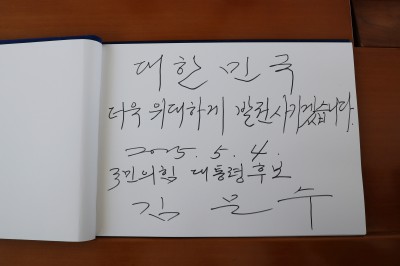 대한민국
더욱 위대하게 발전시키겠습니다.
2025. 5. 4.
국민의힘 대통령 후보
김문수